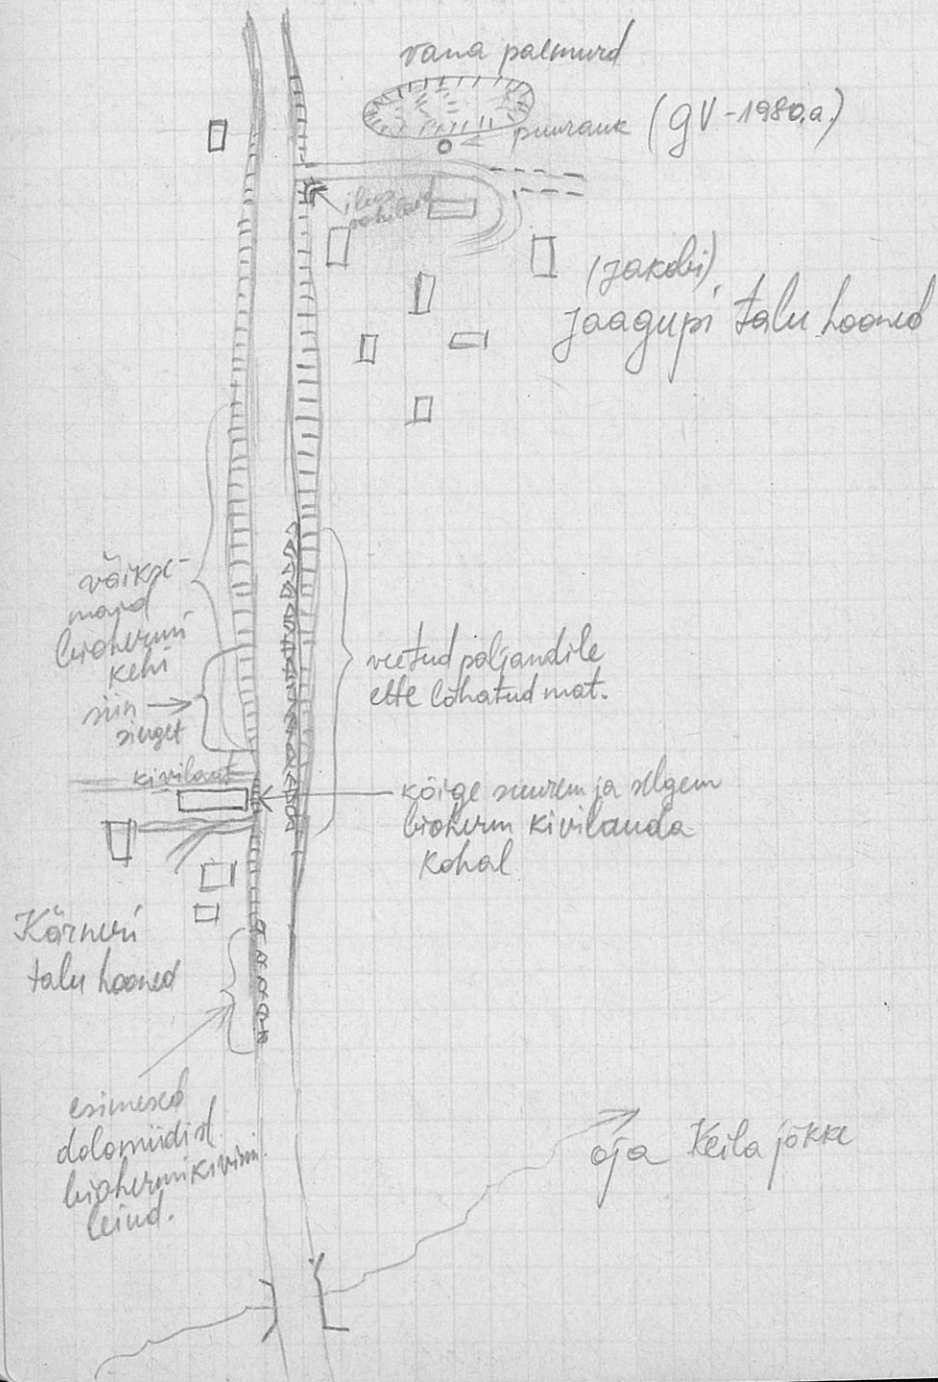 vana paemurd
puurauk (GV-1980.a.)
ilus
(Jakobi)
Jaagupi talu hooned
väikse-
maid
biohermi
kehi
siin
selget
veetud paljandile
ette lõhatud mat.
kivilaut
kõige suurem ja selgem
bioherm kivilauda
kohal
Kärneri
talu hooned
esimesed
dolomiidist
biohermikivimi
leiud.
oja Keila jõkke